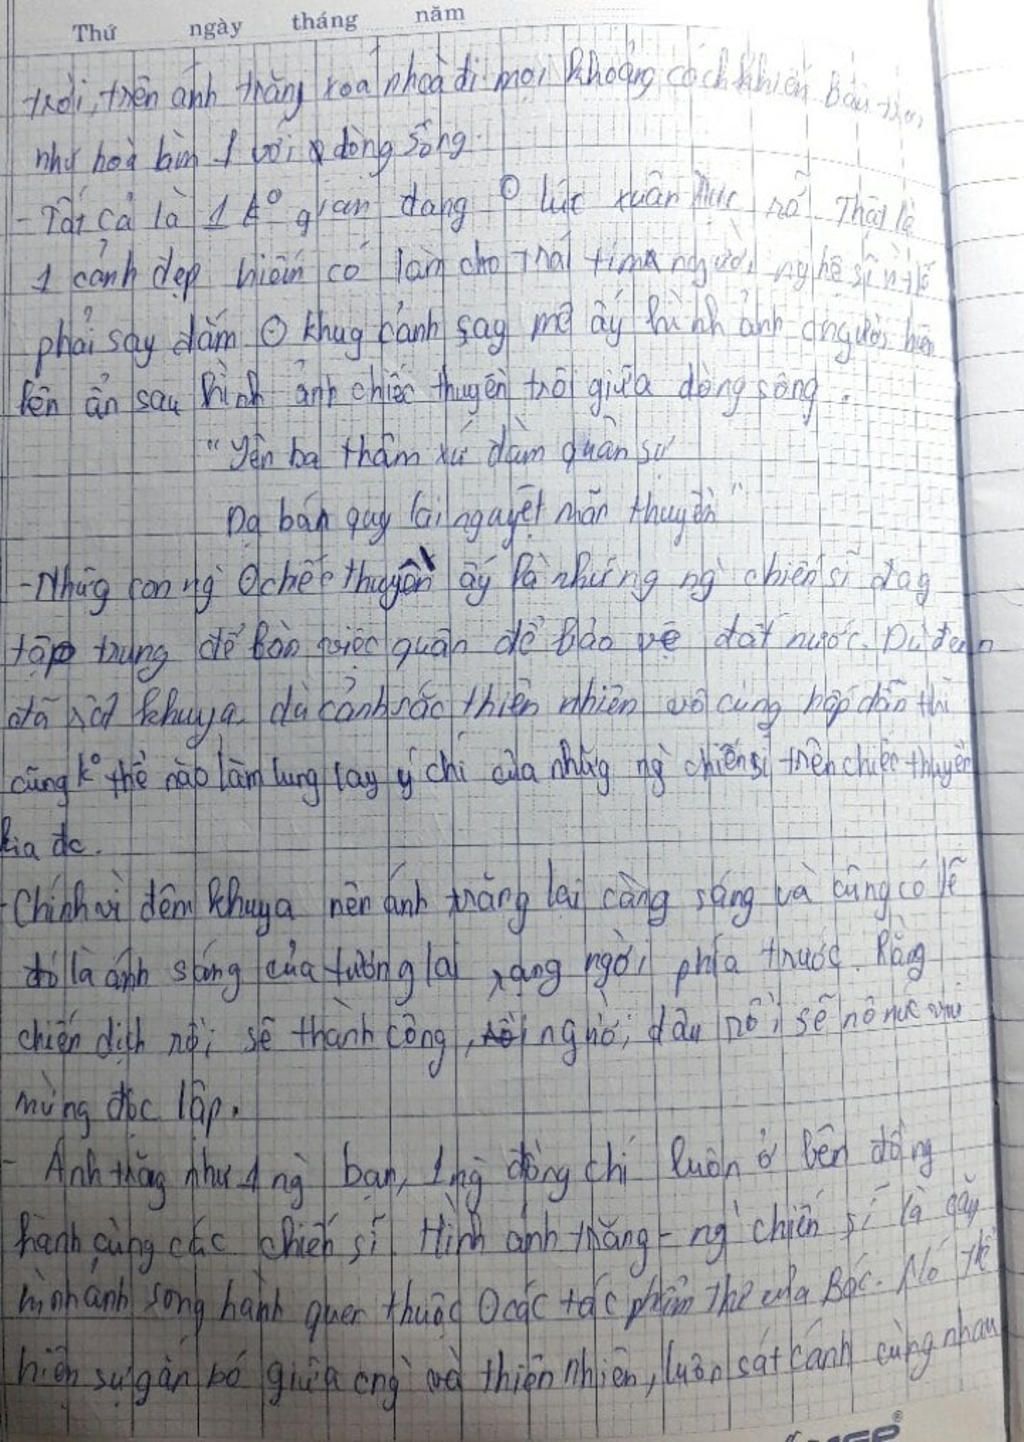 Thứ ngày tháng năm
trời, trên ánh trăng xoá nhoà đi mọi khoảng cách khiến bầu trời
như hoà làm 1 với dòng sông.
- Tất cả là 1 k° gian đang ⊙ lúc xuân rực rỡ. Thật là
1 cảnh đẹp hiếm có làm cho trái tim người nghệ sĩ
phải say đắm ⊙ khug cảnh say mê ấy hình ảnh con người hiện
lên ẩn sau hình ảnh chiếc thuyền trôi giữa dòng sông.
"Yên ba thâm xứ đàm quân sự
Dạ bán quy lai nguyệt mãn thuyền"
- Nhũg con ng' ⊙ chiếc thuyền ấy là những ng' chiến sĩ đag
tập trung để bàn việc quân để bảo vệ đất nước. Dù đêm
đã rất khuya dù cảnh sắc thiên nhiên vô cùng hấp dẫn thì
cũng k° thể nào làm lung lay ý chí của nhữg ng' chiến sĩ trên chiếc thuyền
kia đc.
- Chính vì đêm khuya nên ánh trăng lại càng sáng và cũng có lẽ
đó là ánh sáng của tương lai rạng ngời phía trước. Rằng
chiến dịch rồi sẽ thành công, nơi nơi sẽ nô nức vui
mừng độc lập.
- Ánh trăg như 1 ng' bạn, 1 ng' đồng chí luôn ở bên đồng
hành cùng các chiến sĩ. Hình ảnh trăng - ng' chiến sĩ là cặp
hình ảnh song hành quen thuộc ⊙ các tác phẩm thơ của Bác. Nó thể
hiện sự gắn bó giữa con ng' và thiên nhiên, luôn sát cánh cùng nhau